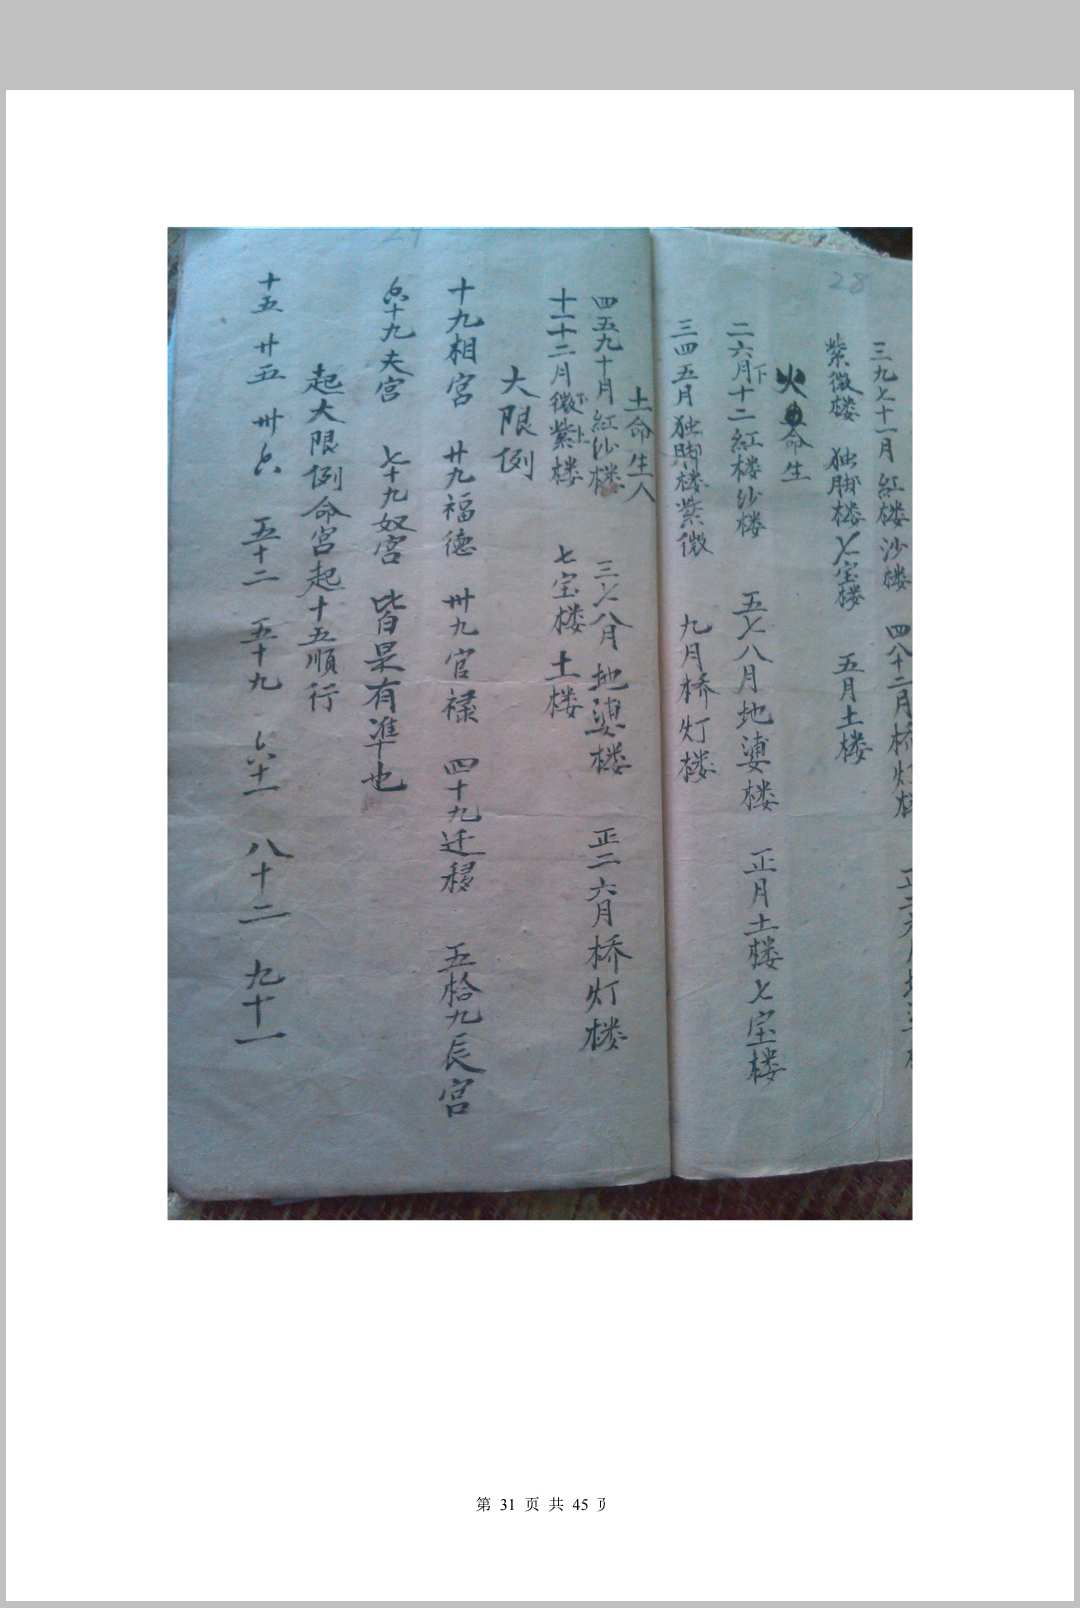 28
三九七十一月 紅楼沙楼 四八十二月桥灯楼
紫微楼 独脚楼七宝楼 五月土楼
火命生
二六月十二紅楼沙楼 五七八月地婆楼 正月土楼七宝楼
下
三四五月独脚楼紫微 九月桥灯楼
土命生人
四五九十月紅沙楼 三七八月地婆楼 正二六月桥灯楼
十一十二月微紫楼 七宝楼土楼
下上
大限例
十九相宫 廿九福德 卅九官禄 四十九迁移 五拾九長宫
六十九夫宫 七十九奴宫 皆是有準也
起大限例命宫起十五順行
十五 廿五 卅六 五十二 五十九 六十一 八十二 九十一
第 31 页 共 45